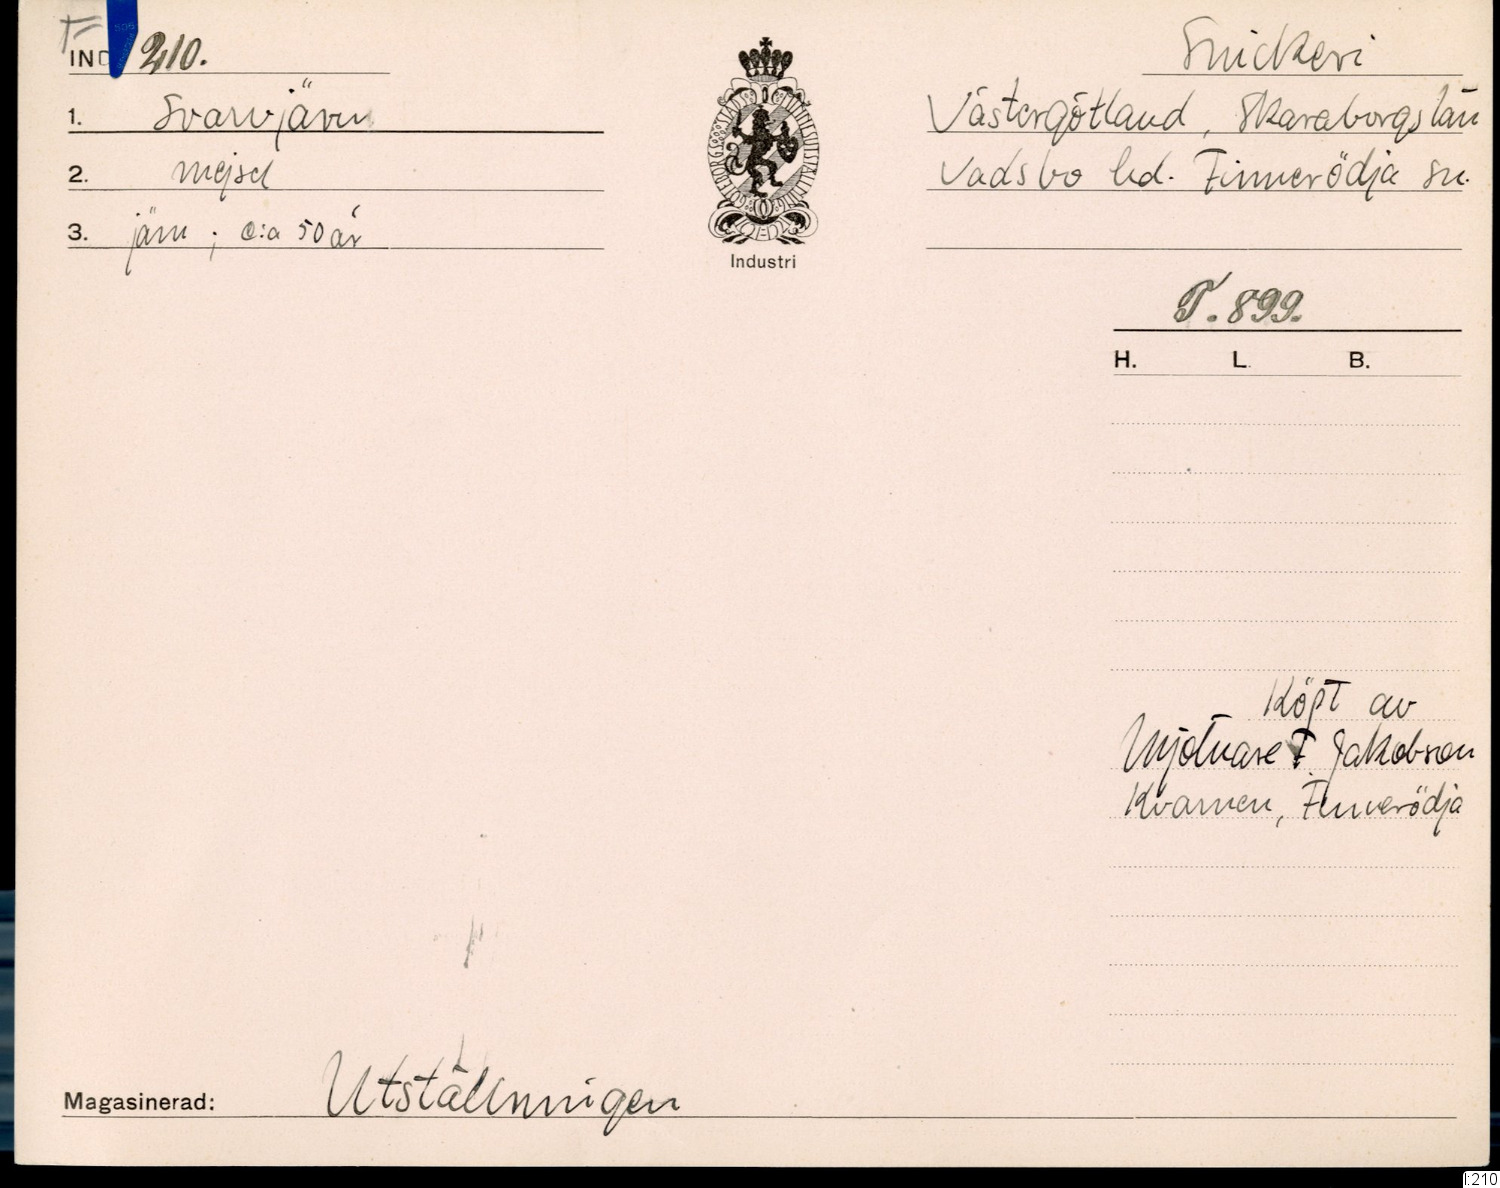 IND 210.
Snickeri
1. Svarvjärn
Västergötland, Skaraborgs län
2. mejsel
Vadsbo hd. Finnerödja sn.
3. järn ; c:a 50 år
Industri
T. 899.
H. L. B.
Köpt av
Mjölnare F. Jakobson
Kvarnen, Finnerödja
Magasinerad: Utställningen
I:210